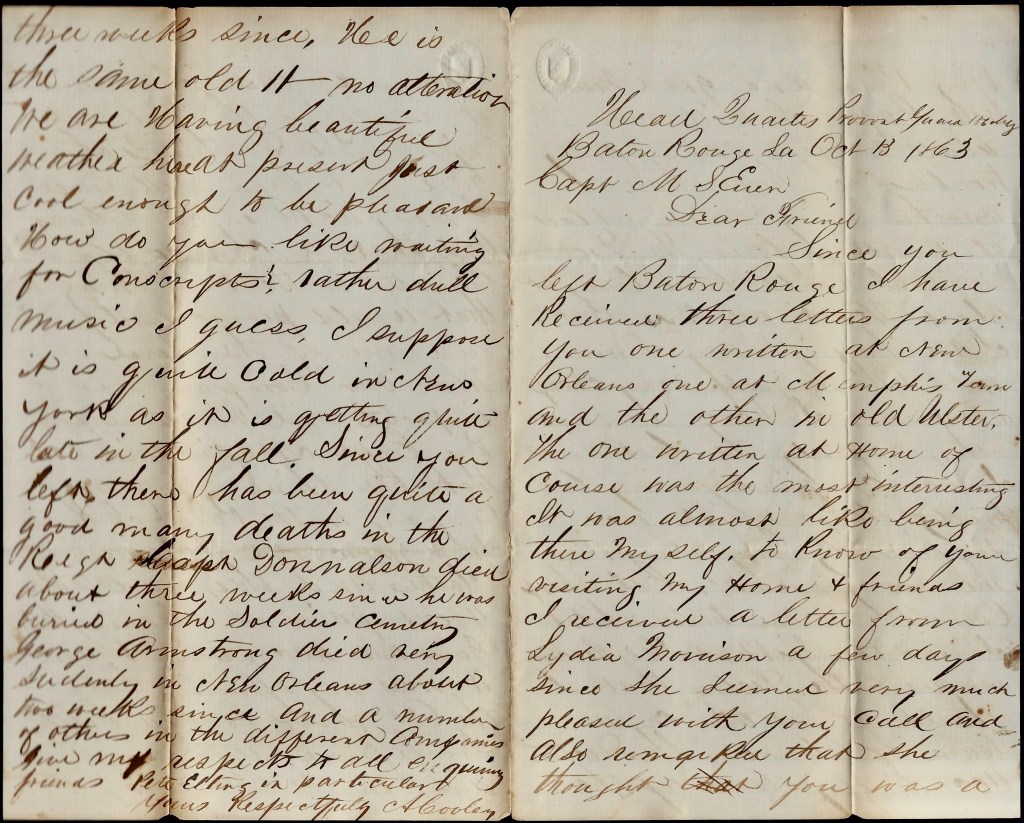 Head Quarters Provost Guard
Baton Rouge La Oct 13 1863
Capt M
Dear Friend
Since you
left Baton Rouge I have
Received three letters from
you one written at New
Orleans one at Memphis Tenn
and the other in old Ulster.
The one written at Home of
Course was the most interesting
It was almost like being
there My self. to Know of your
visiting My Home & friends
I received a letter from
Lydia Morrison a few days
since she seemed very much
pleased with your Call and
Also remarked that she
thought that you was a
three weeks since, He is
the same old It no alteration
We are Having beautiful
weather at present just
Cool enough to be pleasant
How do you like waiting
for Conscripts? rather dull
music I guess, I suppose
it is quite Cold in New
York as it is getting quite
late in the fall. Since you
left there has been quite a
good many deaths in the
Regt Donnalson died
about three weeks since he was
buried in the Soldier Cemetry
George Armstrong died very
suddenly in New Orleans about
two weeks since And a number
of others in the different Companies
Give my respects to all enquiring
friends Pete Elting in particular
Yours Respectfully A Cooley